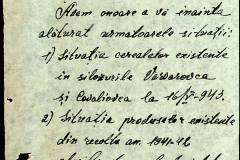 Avem onoare a vă înainta
alăturat urmatoarele situații:
1) Situația cerealelor existente
în silozurile Varvarovca
și Covaliovca la 16/IV-943.
2) Situația produselor existente
din recolta an. 1941-42